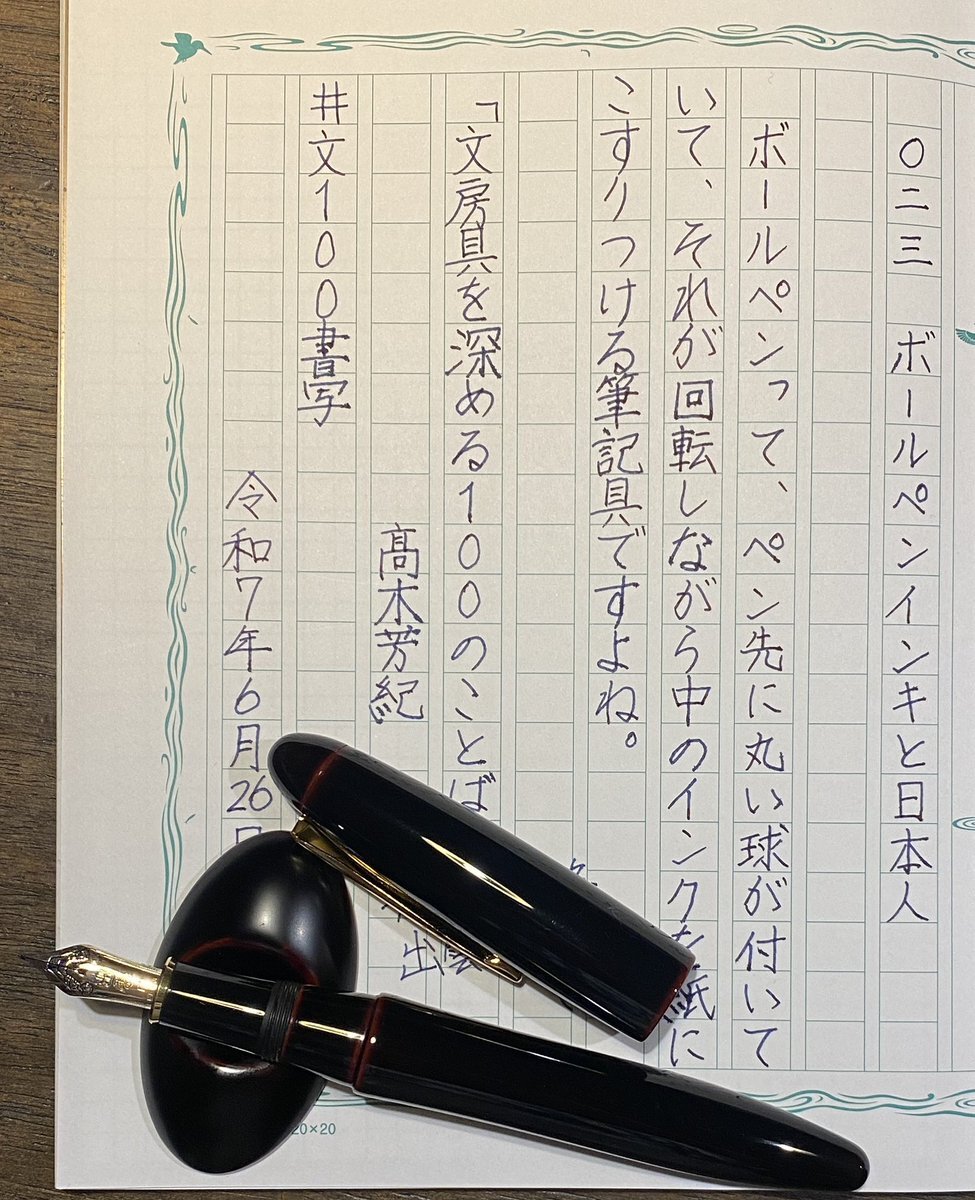 〇二三 ボールペンインキと日本人
ボールペンって、ペン先に丸い球が付いて
いて、それが回転しながら中のインクを紙に
こすりつける筆記具ですよね。
「文房具を深める100のことば
髙木芳紀
#文100書写
令和7年6月26日
出雲
20×20